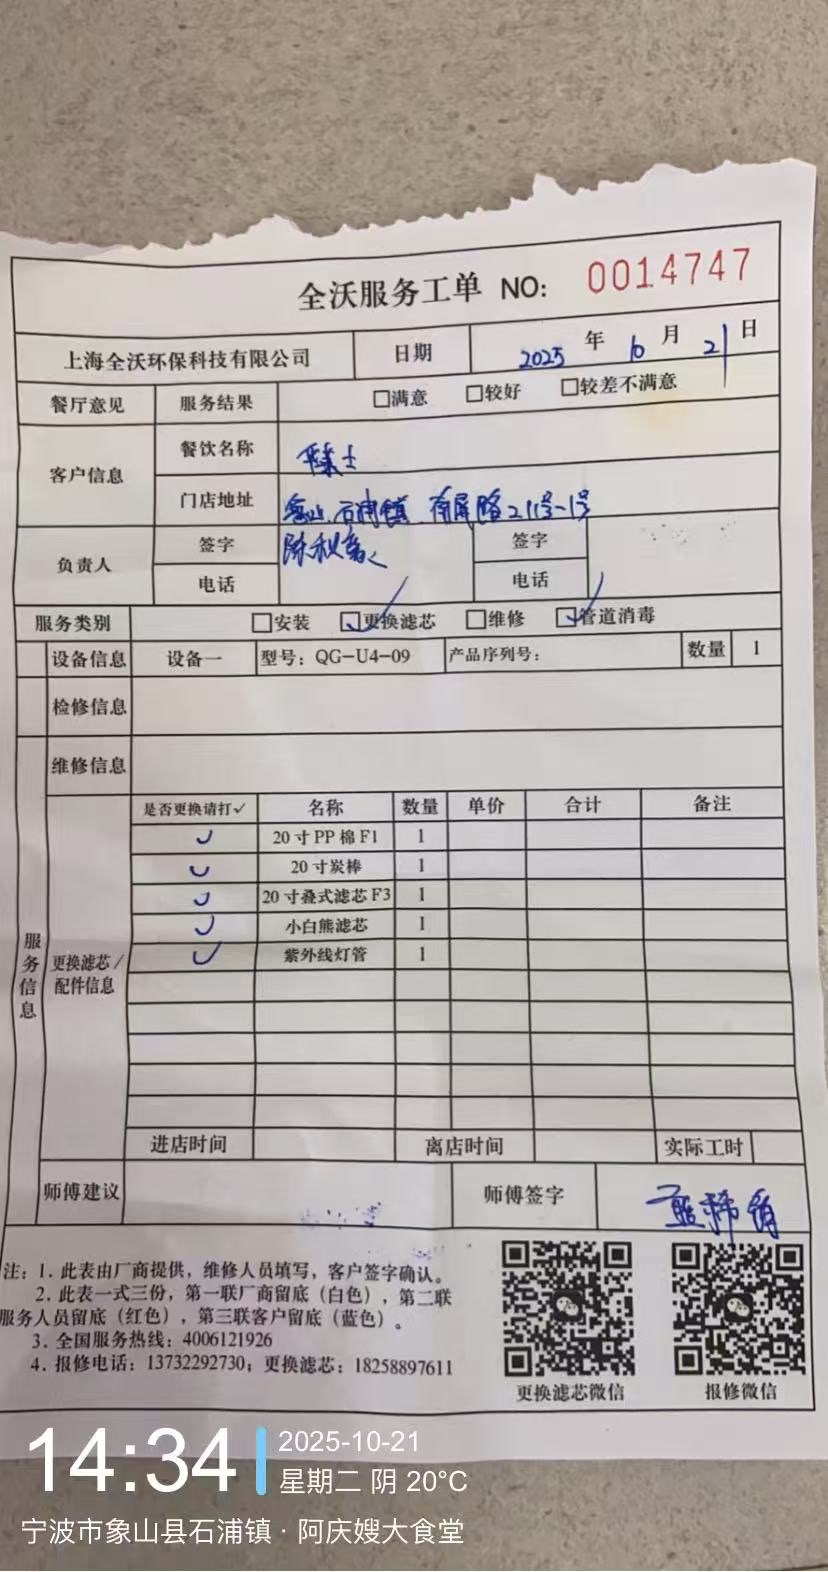 全沃服务工单 NO: 0014747
上海全沃环保科技有限公司 日期 2025 年 10 月 21 日
餐厅意见 服务结果 □满意 □较好 □较差不满意
客户信息 餐饮名称
门店地址 象山.石浦镇.南屏路211号-1号
负责人 签字 签字
电话 电话
服务类别 □安装 ☑更换滤芯 □维修 ☑管道消毒
设备信息 设备一 型号：QG-U4-09 产品序列号： 数量 1
检修信息
维修信息
服务信息
更换滤芯/配件信息
是否更换请打✓ 名称 数量 单价 合计 备注
✓ 20寸PP棉F1 1
✓ 20寸炭棒 1
✓ 20寸叠式滤芯F3 1
✓ 小白熊滤芯 1
✓ 紫外线灯管 1
进店时间 离店时间 实际工时
师傅建议 师傅签字
注：1. 此表由厂商提供，维修人员填写，客户签字确认。
2. 此表一式三份，第一联厂商留底（白色），第二联
服务人员留底（红色），第三联客户留底（蓝色）。
3. 全国服务热线：4006121926
4. 报修电话：13732292730；更换滤芯：18258897611
更换滤芯微信 报修微信
14:34
2025-10-21
星期二 阴 20°C
宁波市象山县石浦镇 · 阿庆嫂大食堂